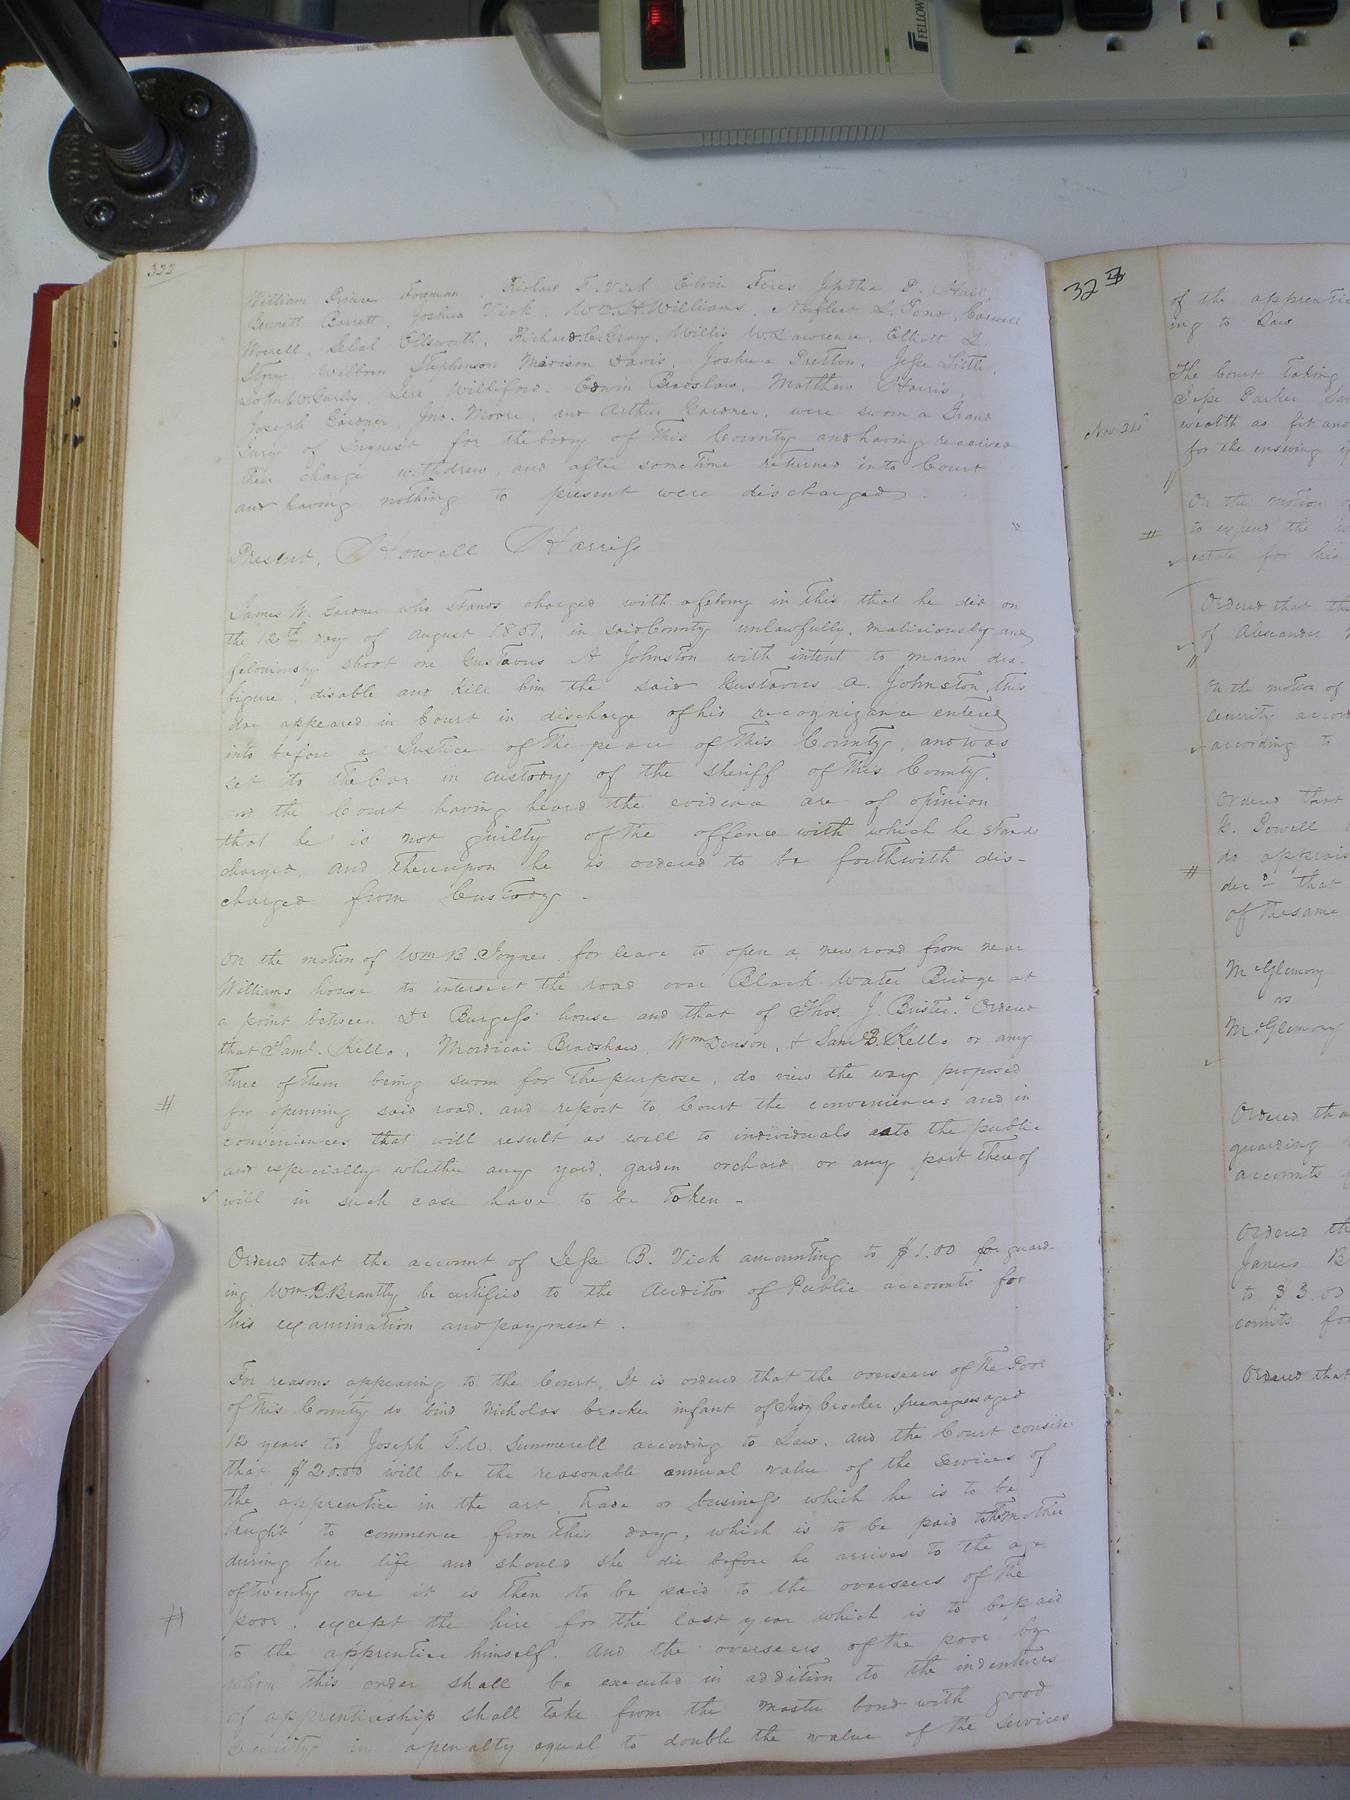 322
William Prince Foreman, Richard T. Vick Elvin Feres Jeptha P. Hail
Bennett Barrett, Joshua Vick, Wm. H. Williams, Norfleet S. Pond, Carswell
Worrell, Lelal Ellsworth, Richard C. Gray, Willis W. Lawrence, Elliott L.
Story, Wilborn Stephenson Madison Davis, Joshua Pretlow, Jesse Little,
John W. Gurley, Williford, Edwin Bradshaw, Matthew Harris
Joseph Gardner, Jno. Moore, and Arthur Gardner, were sworn a Grand
Jury of Inquest for the body of this County and having received
their charge withdrew, and after sometime returned into Court
and having nothing to present were discharged
Present, Howell Harriss
James N. Gardner who stands charged with a felony in this that he did on
the 12th day of August 1851, in said County unlawfully, maliciously and
feloniously shoot one Gustavus A Johnston with intent to maim dis-
figure, disable and Kill him the said Gustavus A. Johnston this
day appeared in Court in discharge of his recognizance entered
into before a Justice of the peace of this County, and was
set to the bar in custody of the sheriff of this County,
and the Court having heard the evidence are of opinion
that he is not guilty of the offence with which he stands
charged, and thereupon he is ordered to be forthwith dis-
charged from Custody -
On the motion of Wm B. Joyner for leave to open a new road from near
Williams house to intersect the road over Black Water Bridge at
a point between Dr Burgess' house and that of Thos. J. Brister. Ordered
that Saml. Kello, Mordicai Bradshaw, Wm Denson, & Saml B. Kello or any
three of them being sworn for the purpose, do view the way proposed
# for openning said road, and report to Court the conveniences and in
conveniences that will result as well to individuals as to the public
and especially whether any yard, garden orchard or any part thereof
will in such case have to be taken -
Ordered that the account of Jesse B. Vick amounting to $1.00 for guard-
ing Wm. Brantly be certified to the Auditor of Public accounts for
his examination and payment.
For reasons appearing to the Court, It is ordered that the overseers of the Poor
of this County do bind Nicholas Crocker infant of Judy Crocker free negroes aged
12 years to Joseph T. W. Summerell according to Law, and the Court consider
that $20.00 will be the reasonable annual value of the services of
the apprentice in the art trade or business which he is to be
taught to commence from this day, which is to be paid to the mother
during her life and should she die before he arrives to the age
of twenty one it is then to be paid to the overseers of the
# poor, except the hire for the last year which is to be paid
to the apprentice himself. And the overseers of the poor by
whom this order shall be executed in addition to the indentures
of apprenticeship shall take from the master bond with good
security in a penalty equal to double the value of the services
323
of the apprentic
ing to Law
The Court taking
Jesse Parker
Nov. 24 wealth as fit and
for the ensuing y
On the motion o
# to expend the
estate for his
Ordered that th
of Alexander
On the motion of
security accord
according to
Ordered that
Powell
do apprais
# der that
of the same
McGlemory
vs
McGlemory
Ordered tha
guarding
accounts f
Ordered th
James B
to $3.00
counts fo
Ordered that
FELLOW